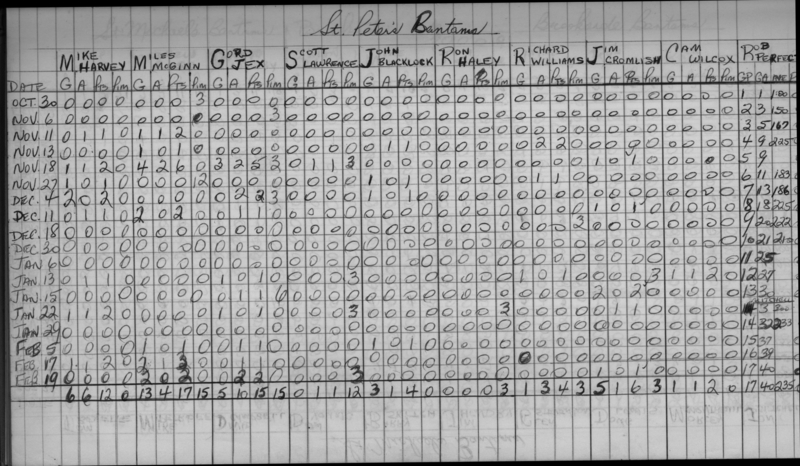 St. Peter's Bantams
MIKE HARVEY MILES McGINN GORD JEX SCOTT LAWRENCE JOHN BLACKLOCK RON HALEY RICHARD WILLIAMS JIM CROMLISH CAM WILCOX ROB PERFECT
DATE G A Pts Pim G A Pts Pim G A Pts Pim G A Pts Pim G A Pts Pim G A Pts Pim G A Pts Pim G A Pts Pim G A Pts Pim GP GA
OCT. 30 0 0 0 0 0 0 0 3 0 0 0 0 0 0 0 0 0 0 0 0 0 0 0 0 0 0 0 0 0 0 0 0 0 0 0 0 1 1
NOV. 6 0 0 0 0 0 0 0 0 0 0 0 3 0 0 0 0 0 0 0 0 0 0 0 0 0 0 0 0 0 0 0 0 0 0 0 2 3 150
NOV. 11 0 1 1 0 1 1 2 0 0 0 0 0 0 0 0 0 0 0 0 0 0 0 0 0 0 0 0 0 0 0 0 0 0 0 0 3 5 167
NOV. 13 0 0 0 0 1 0 1 0 0 0 0 0 0 0 0 0 0 1 1 0 0 0 0 0 0 2 2 0 0 0 0 0 0 0 0 4 9 225
NOV. 18 1 1 2 0 4 2 6 0 3 2 5 3 0 1 1 3 0 0 0 0 0 0 0 0 0 0 0 0 1 0 1 0 0 0 0 0 5 9
NOV. 27 1 0 1 0 0 0 0 12 0 0 0 0 0 0 0 0 1 0 1 0 0 0 0 0 0 1 1 0 0 0 0 0 0 0 0 0 6 11 183
DEC. 4 2 0 2 0 0 0 0 0 0 2 2 3 0 0 0 0 1 0 1 0 0 0 0 0 0 0 0 0 0 0 0 0 0 0 0 0 7 13 186
DEC. 11 0 1 1 0 2 0 2 0 0 1 1 0 0 0 0 0 0 0 0 0 0 0 0 0 0 0 0 0 1 0 1 0 0 0 0 0 8 18 225
DEC. 18 0 0 0 0 0 0 0 0 0 0 0 0 0 0 0 0 0 0 0 0 0 0 0 0 0 0 0 3 0 0 0 0 0 0 0 0 9 20 222
DEC. 30 0 0 0 0 0 0 0 0 0 0 0 0 0 0 0 0 0 0 0 0 0 0 0 0 0 0 0 0 0 0 0 0 0 0 0 0 10 21 210
JAN 6 0 0 0 0 0 0 0 0 0 0 0 0 0 0 0 0 0 0 0 0 0 0 0 0 0 0 0 0 0 0 0 0 0 0 0 0 11 25
JAN. 13 0 1 1 0 0 0 0 0 1 0 1 0 0 0 0 3 0 0 0 0 0 0 0 0 1 0 1 0 0 0 0 3 1 1 2 0 12 27
JAN. 15 0 0 0 0 0 0 0 0 0 1 1 6 0 0 0 0 0 0 0 0 0 0 0 0 0 0 0 0 2 0 2 0 0 0 0 0 13 30
JAN. 22 1 1 2 0 0 0 0 0 1 0 1 0 0 0 0 3 0 0 0 0 0 0 0 3 0 0 0 0 0 1 1 0 0 0 0 0
JAN 29 0 0 0 0 0 0 0 0 0 0 0 0 0 0 0 0 0 0 0 0 0 0 0 0 0 0 0 0 0 0 0 0 0 0 0 0 14 32 233
FEB. 5 0 0 0 0 1 0 1 0 0 1 1 0 0 0 0 0 1 0 1 0 0 0 0 0 0 0 0 0 0 0 0 0 0 0 0 0 15 37
FEB. 17 1 1 2 0 2 1 3 0 0 1 1 0 0 0 0 0 0 0 0 0 0 0 0 0 0 0 0 0 0 0 0 0 0 0 0 16 39
FEB 19 0 0 0 0 2 0 2 0 0 2 2 0 0 0 0 3 0 0 0 0 0 0 0 0 0 0 0 0 1 0 1 0 0 0 0 0 17 40
6 6 12 0 13 4 17 15 5 10 15 15 0 1 1 12 3 1 4 0 0 0 0 3 1 3 4 3 5 1 6 3 1 1 2 0 17 40 235